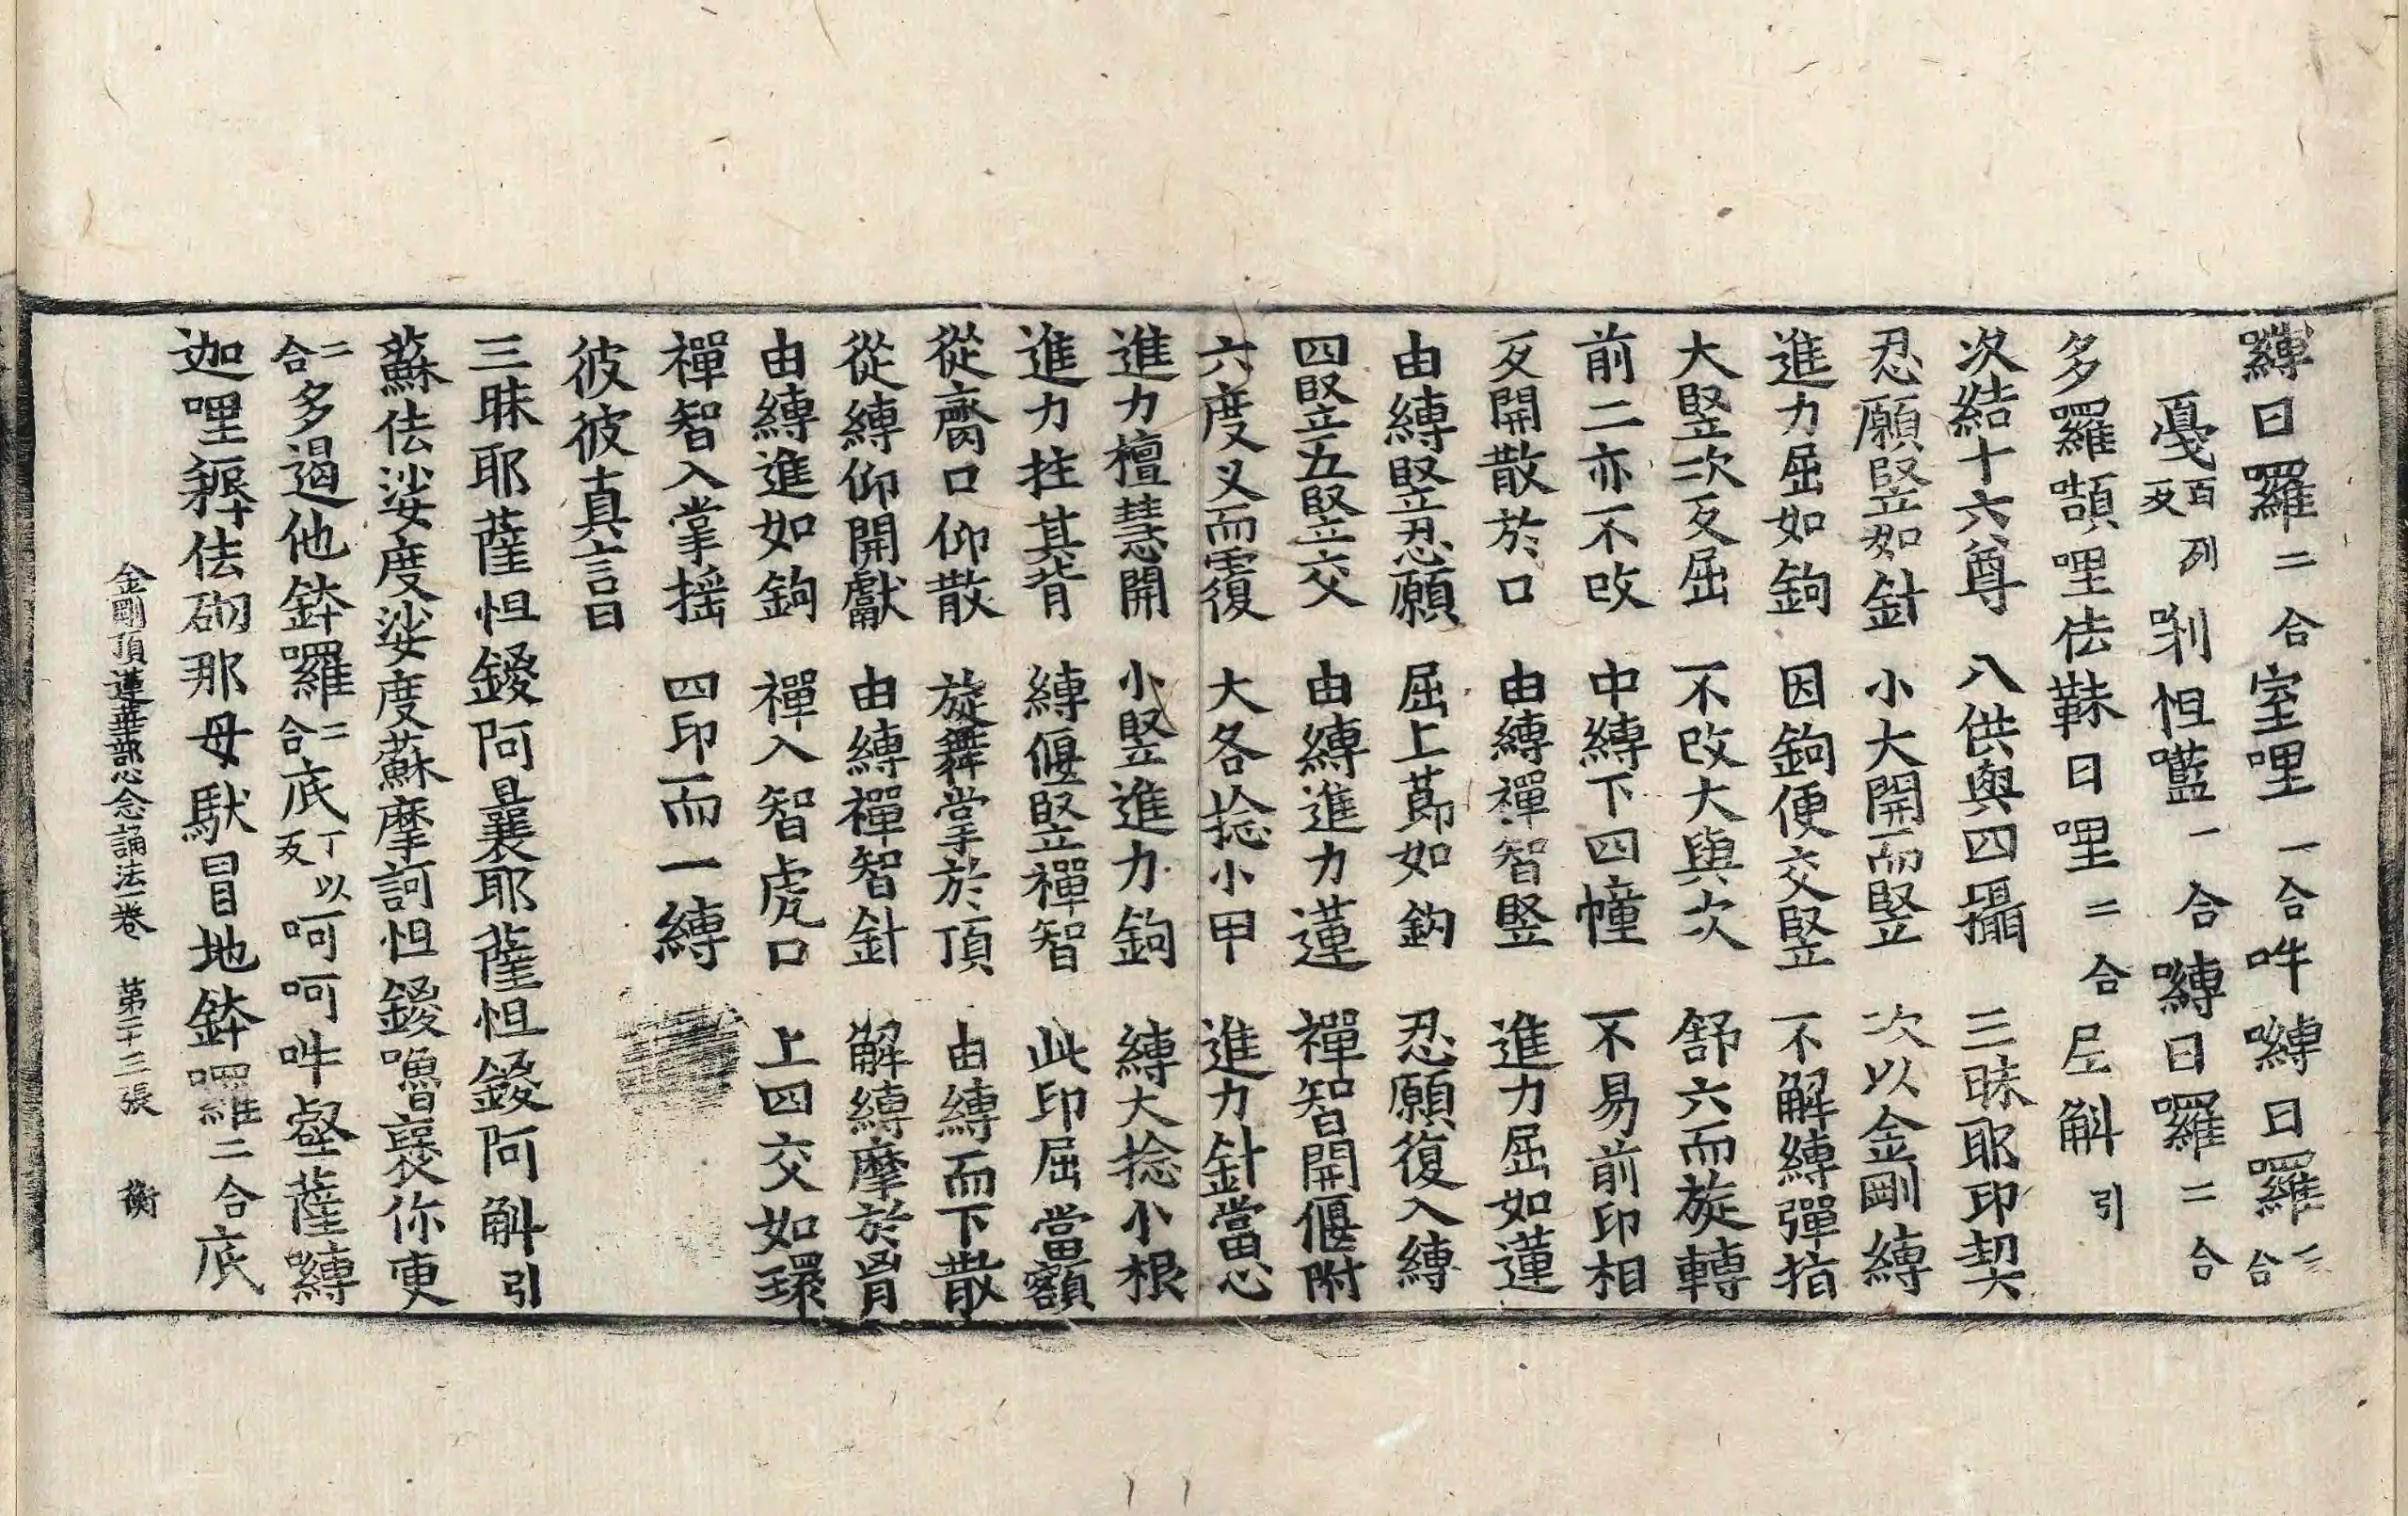 嚩日羅二合室哩一合吽嚩日羅二合
戞百列反剎怛㘕一合嚩日羅二合
多羅頷哩佉靺日哩二合𡱝斛引
次結十六尊 八供與四攝 三昧耶印契
忍願竪如針 小大開而竪 次以金剛縛
進力屈如鉤 因鉤便交竪 不解縛彈指
大竪次反屈 不改大與次 舒六而旋轉
前二亦不改 中縛下四幢 不易前印相
反開散於口 由縛禪智竪 進力屈如蓮
由縛竪忍願 屈上莭如鈎 忍願復入縛
四竪五竪交 由縛進力蓮 禪智開偃附
六度叉而覆 大各捻小甲 進力針當心
進力檀慧開 小竪進力鉤 縛大捻小根
進力拄其背 縛偃竪禪智 此印屈當額
從齊口仰散 旋舞掌於頂 由縛而下散
從縛仰開獻 由縛禪智針 解縛摩於胷
由縛進如鉤 禪入智虎口 上四交如環
禪智入掌揺 四印而一縛
彼彼真言曰
三昧耶薩怛鑁阿曩耶薩怛鑁阿斛引
蘇佉娑度娑度蘇摩訶怛鑁嚕褭你吏
二合多遏他鉢羅二合底丁以反呵呵吽壑薩嚩
迦哩㗚佉砌那母馱冒地鉢囉二合底
金剛頂蓮華部心念誦法一卷 第二十三張 衡